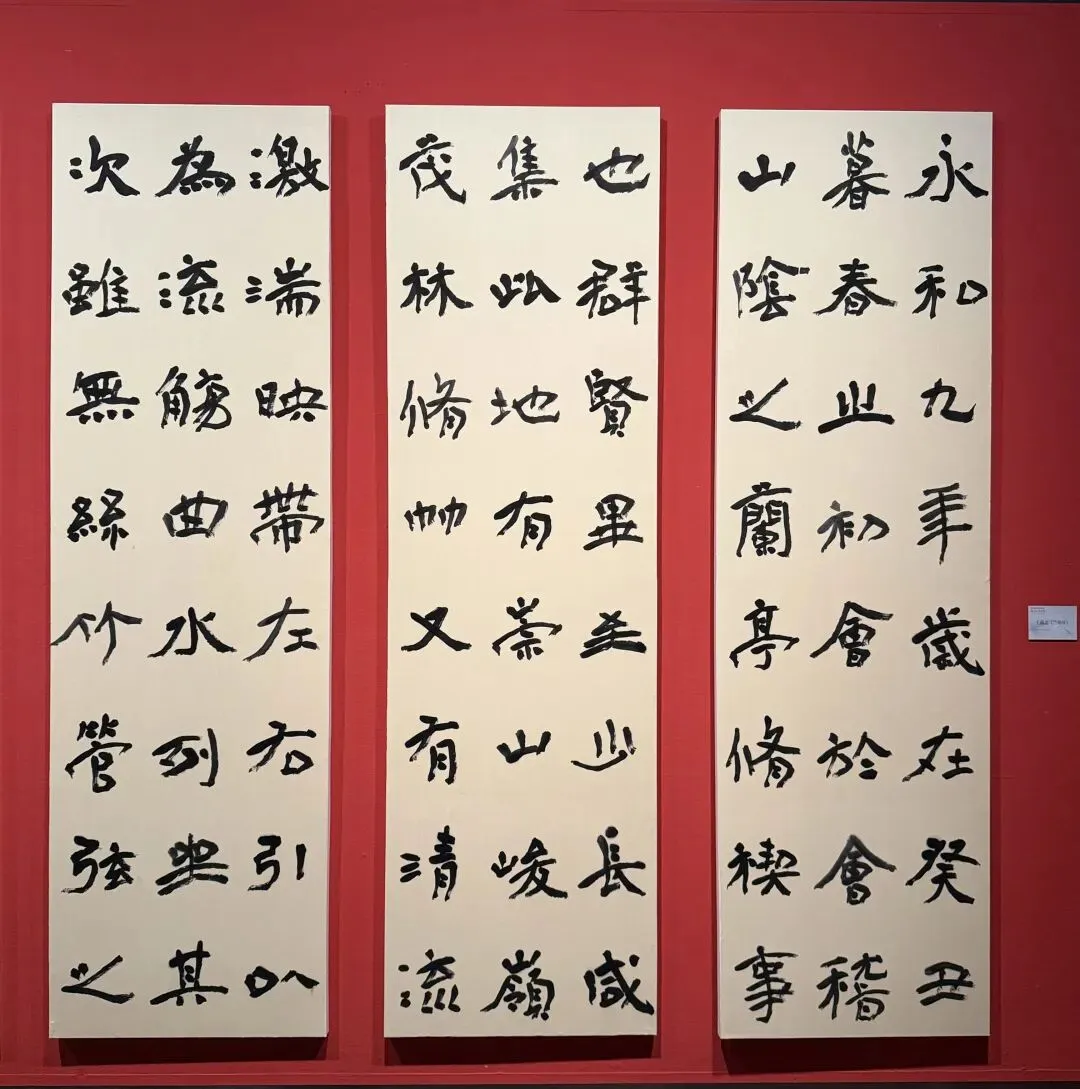 永和九年歲在癸丑
暮春之初會於會稽
山陰之蘭亭脩禊事
也群賢畢至少長咸
集此地有崇山峻嶺
茂林脩竹又有清流
激湍映帶左右引以
為流觴曲水列坐其
次雖無絲竹管弦之